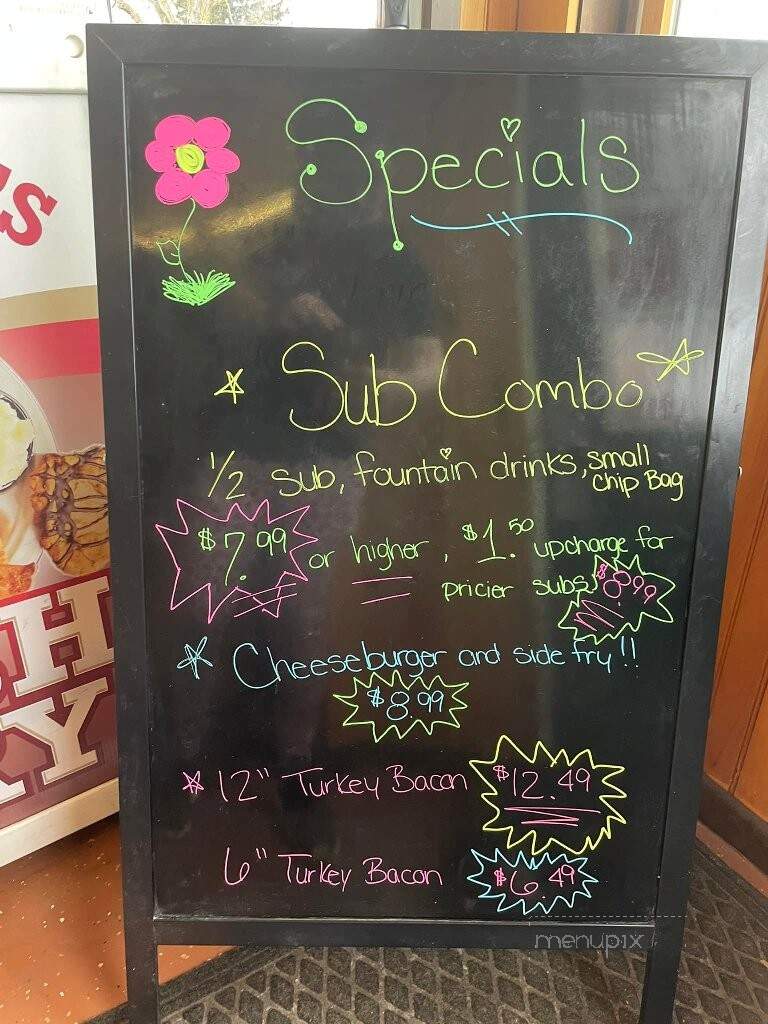 Specials
Sub Combo
1/2 sub, fountain drinks, small
chip Bag
$7.99 or higher, $1.50 upcharge for
pricier subs $8.99
Cheeseburger and side fry!!
$8.99
12" Turkey Bacon $12.49
6" Turkey Bacon $6.49
menupix